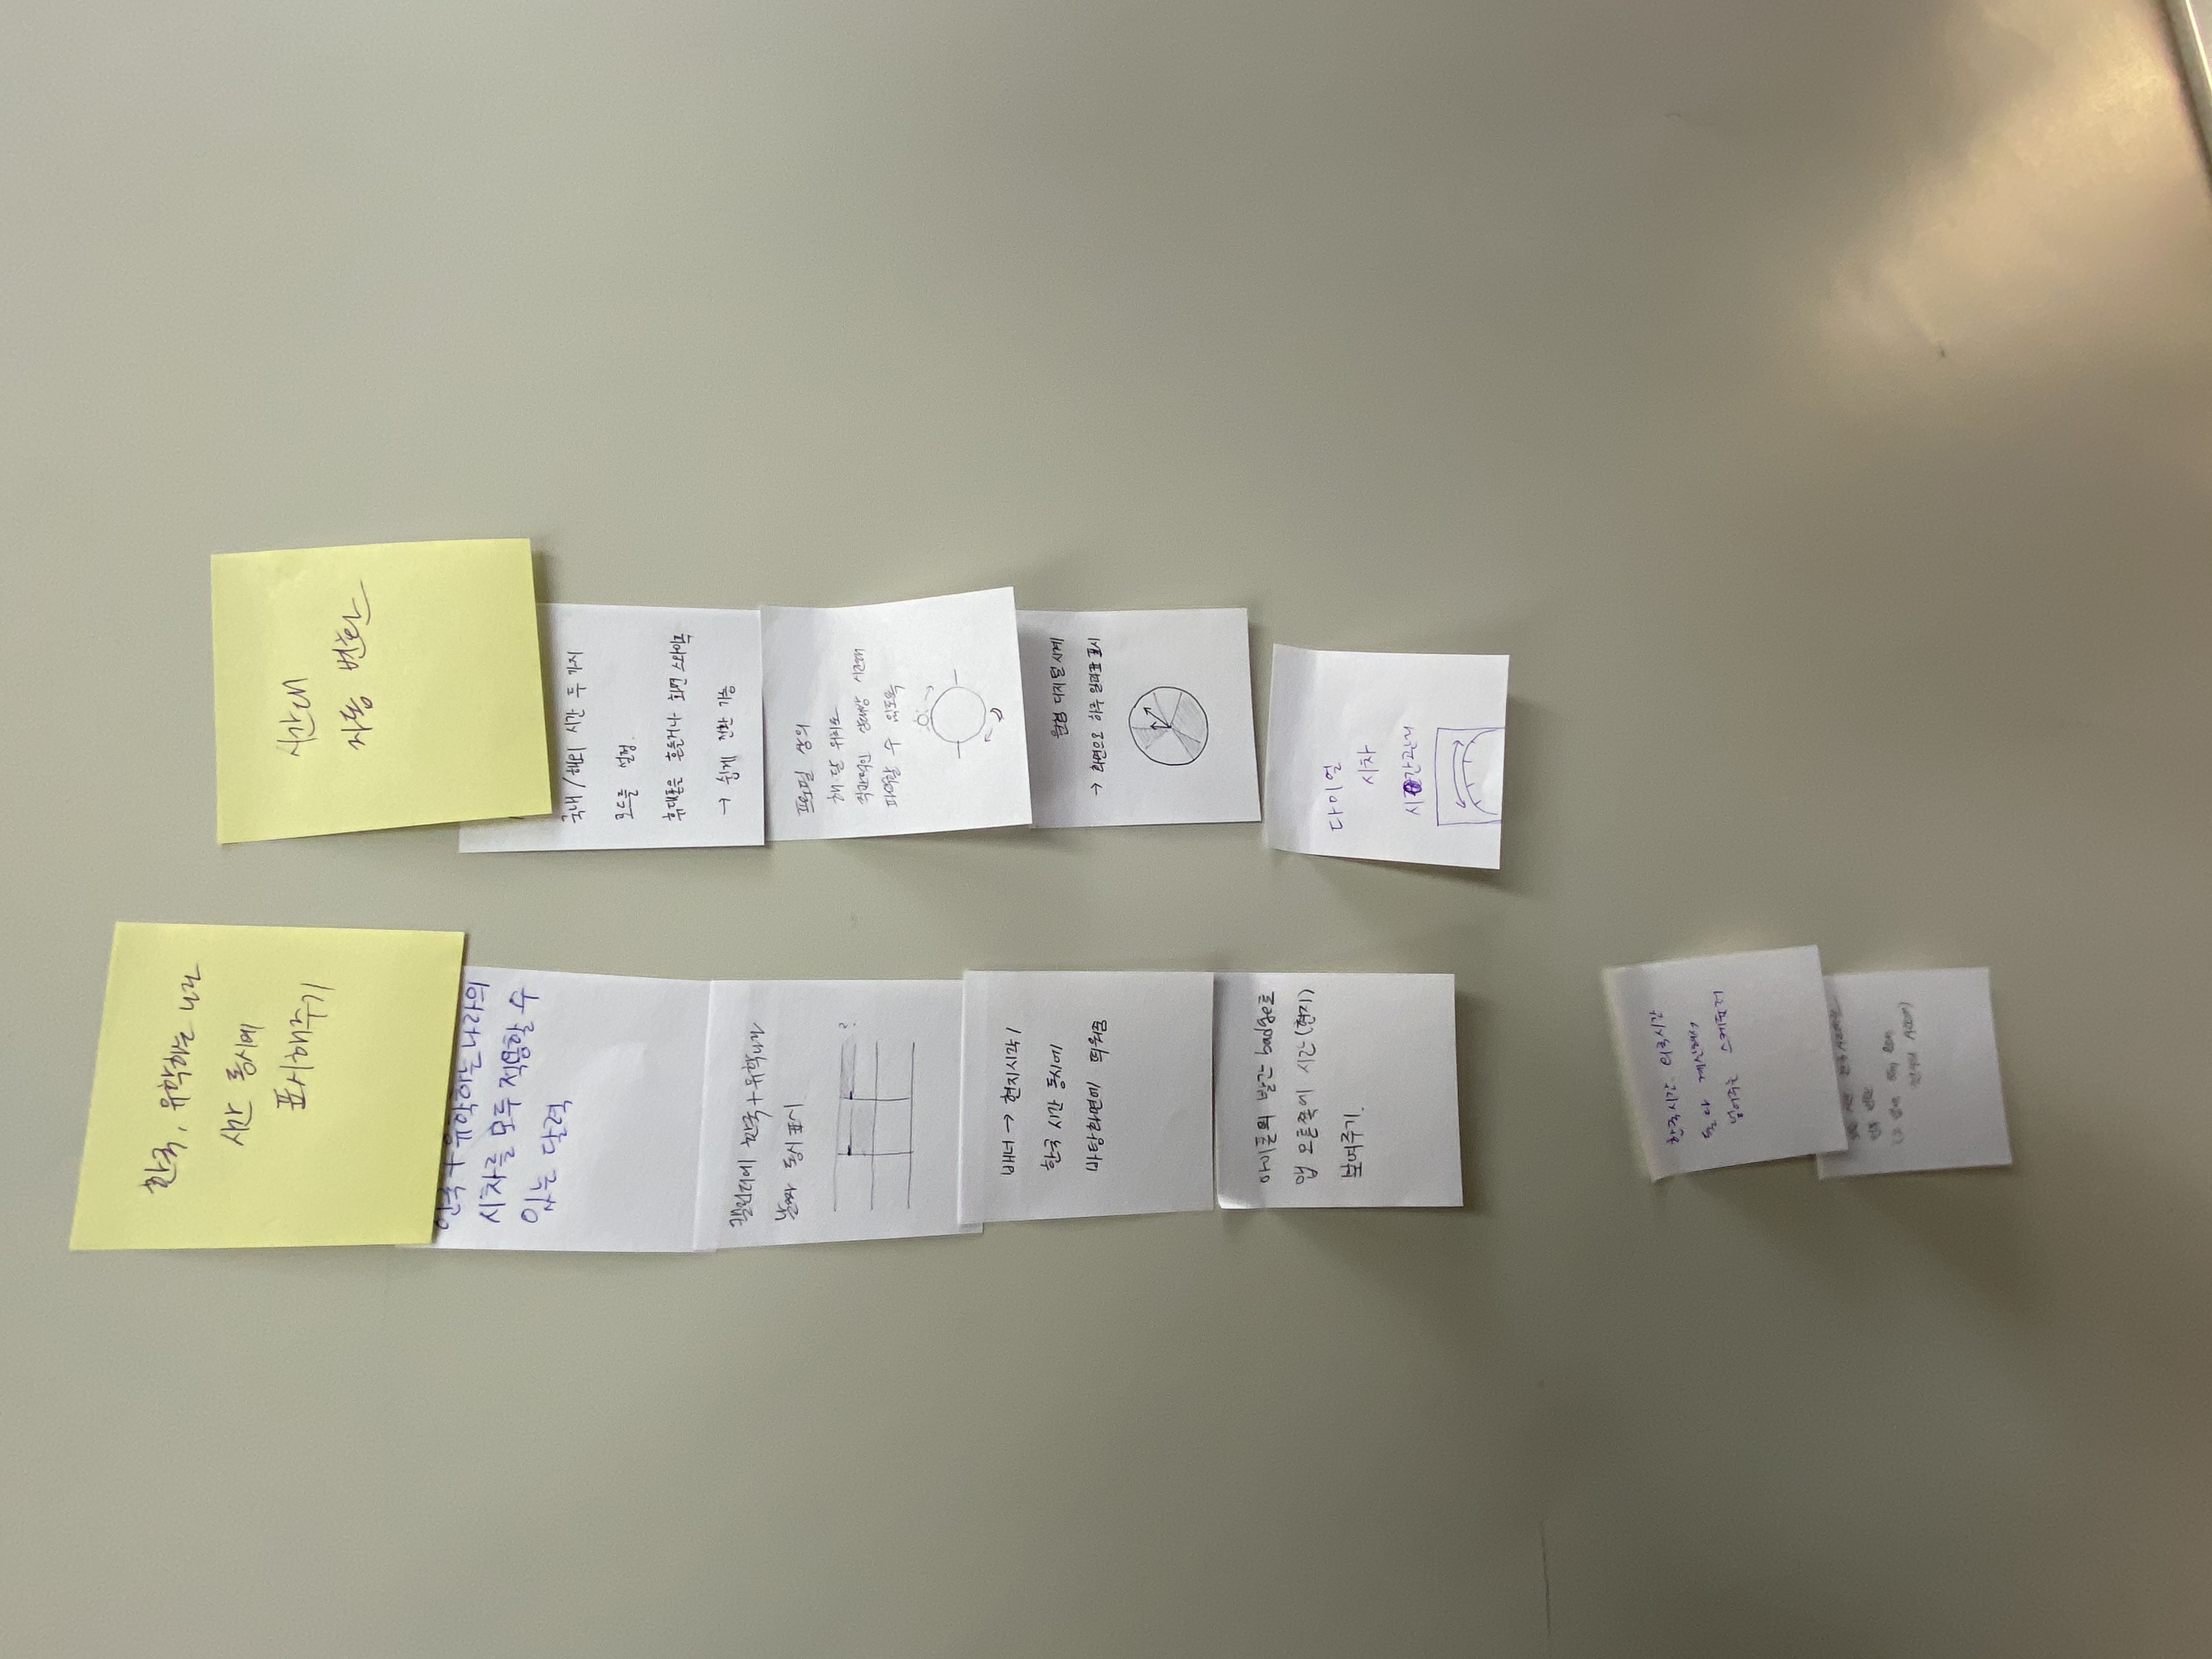 한국, 유학하는 나라
시간 동시에
표시해주기
한국+유학하는 나라의
시차를 모두 적용할 수
있는 달력
캘린더에 한국+유학나라
날짜 동시 표시
?
배너 → 현지시각/
한국 시간 동시에
바탕화면에 띄워줌
아이폰의 빨간 badge로
앱 오른쪽에 시간(현지)
보여주기.
한국시간. 외국시간
둘 다 계산해서
넣어주는 스케줄러
시간대
자동 변환
국내/해외 시간 두 가지
모드를 설정.
휴대폰을 흔들거나 화면 스와이프
→ 쉽게 전환 가능
프로필 상의
해 달 위치로
직관적인 상대방 시간대
파악할 수 있도록
원형 디지털 시계
→ 화면으로 하루 일과표 표시
다이얼
시차
시간관리